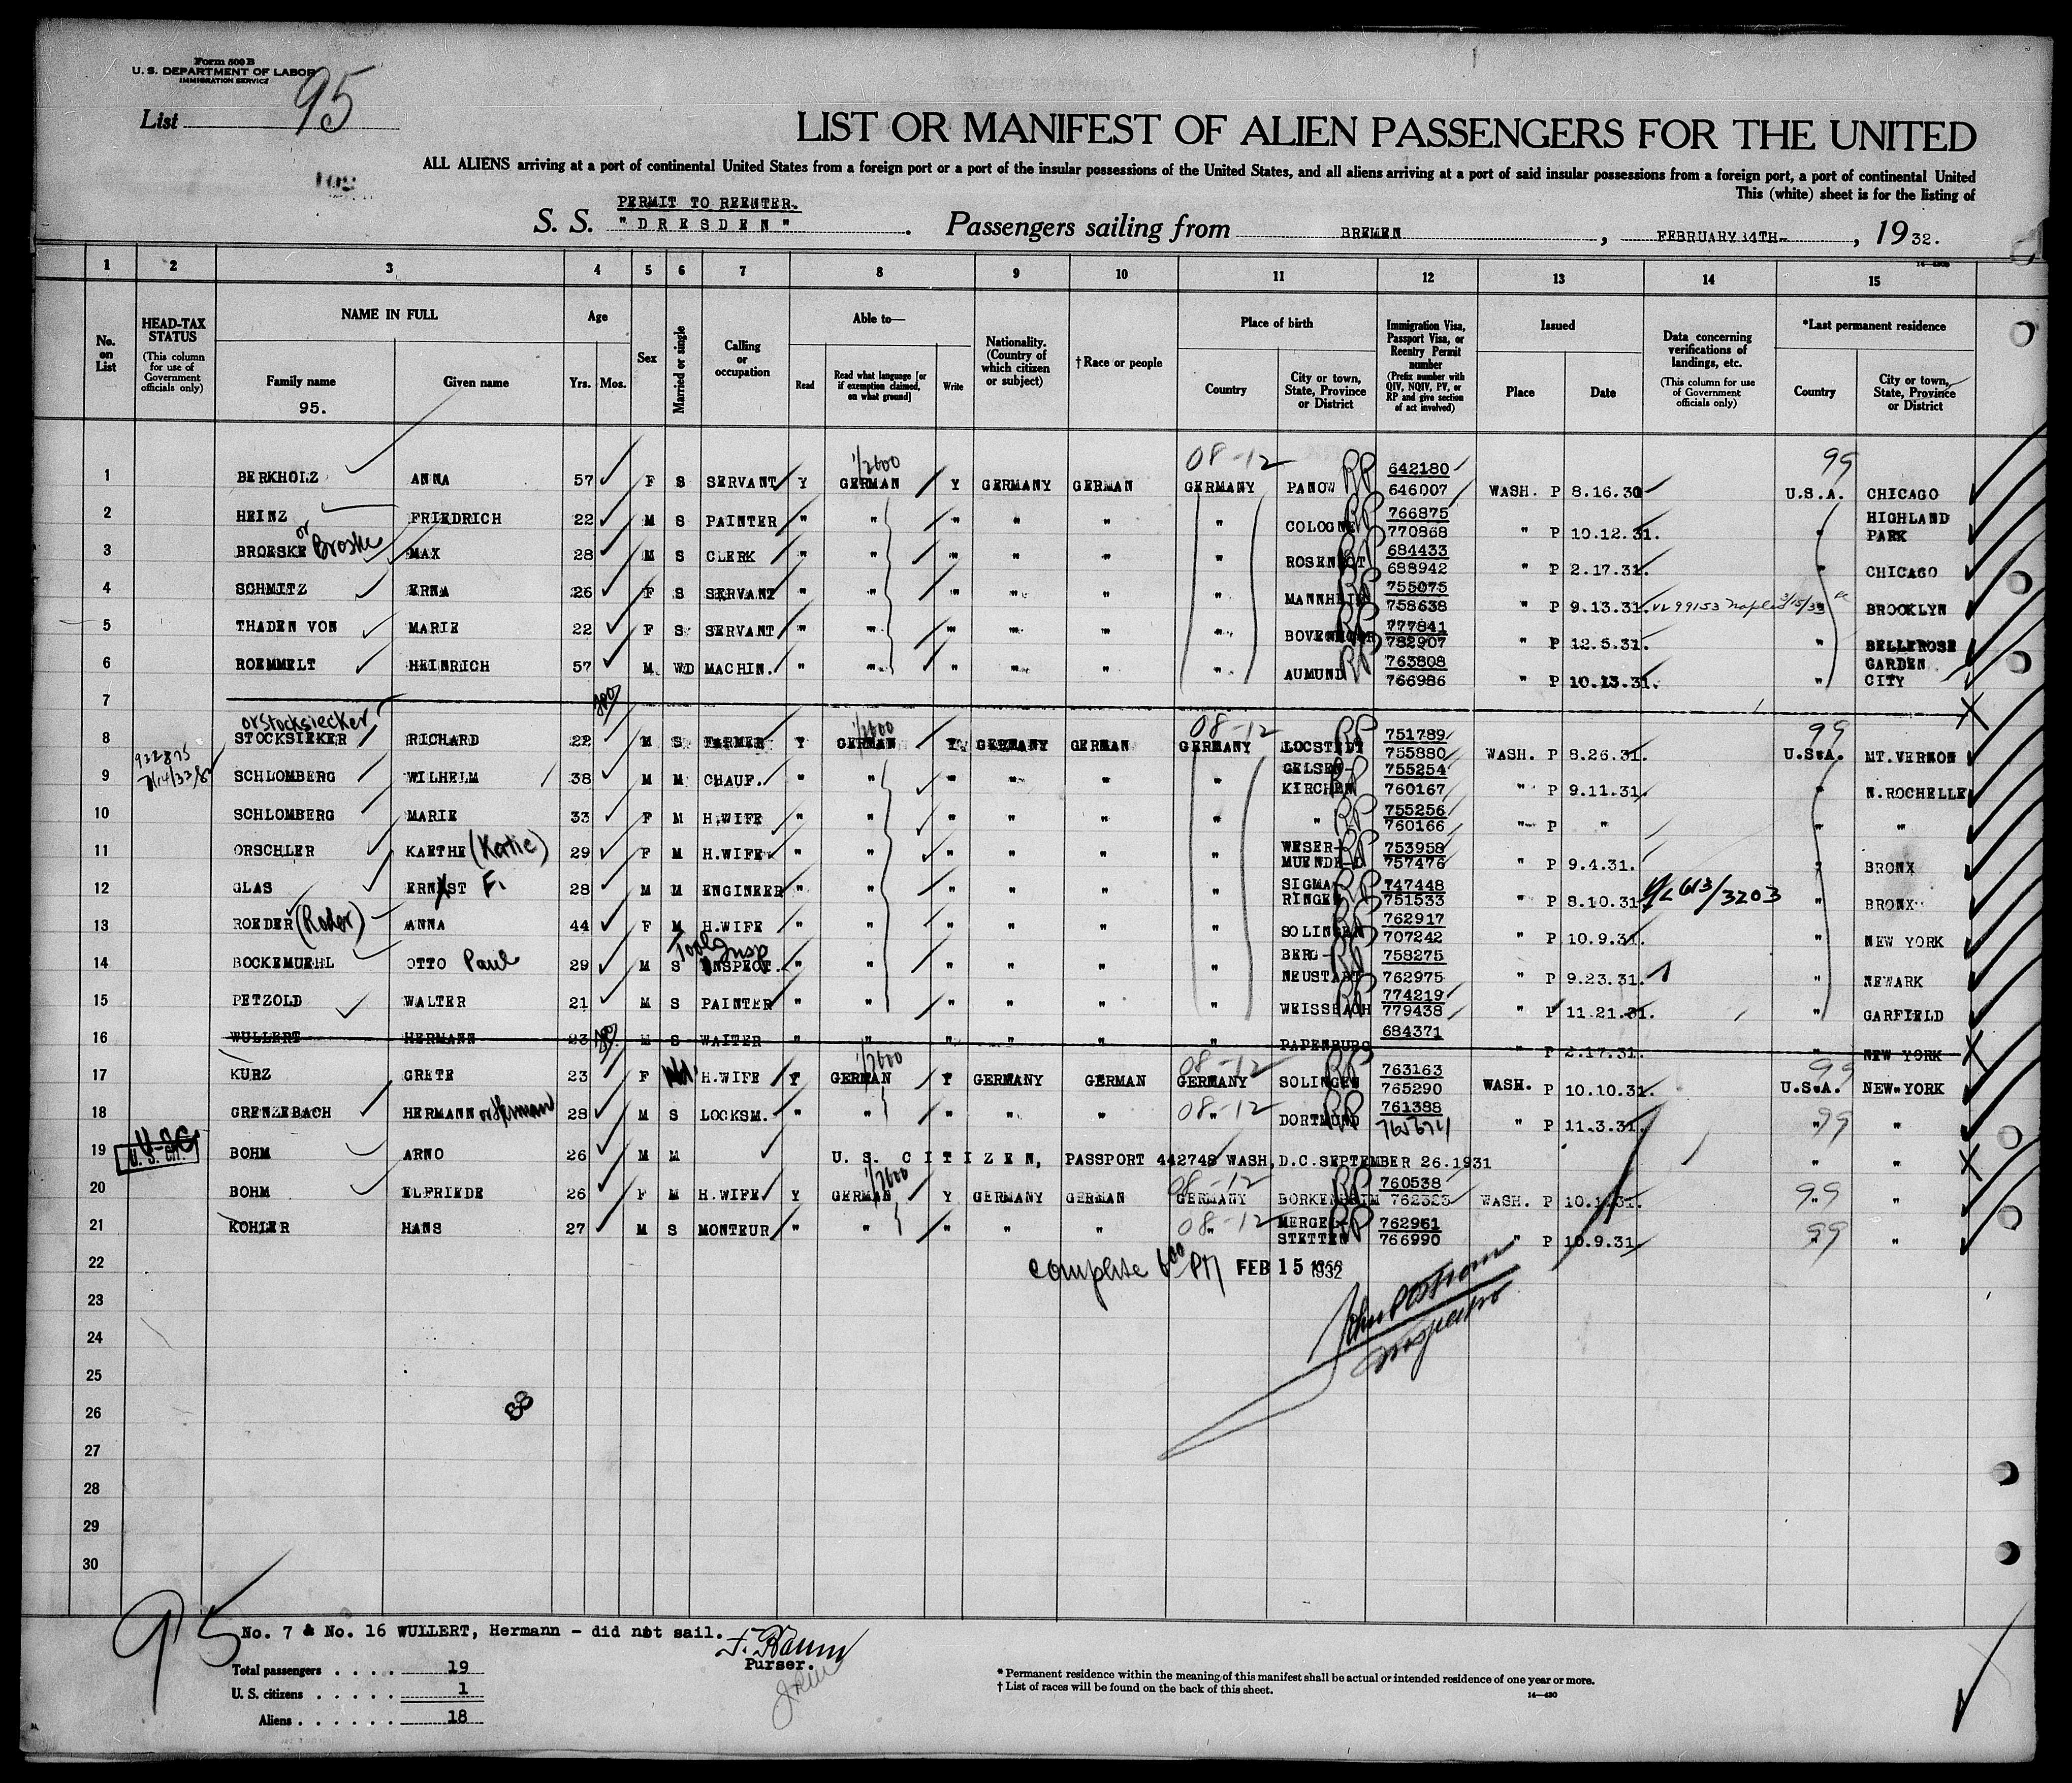 Form 500 B
U. S. DEPARTMENT OF LABOR
IMMIGRATION SERVICE
List 95
LIST OR MANIFEST OF ALIEN PASSENGERS FOR THE UNITED
ALL ALIENS arriving at a port of continental United States from a foreign port or a port of the insular possessions of the United States, and all aliens arriving at a port of said insular possessions from a foreign port, a port of continental United
This (white) sheet is for the listing of
PERMIT TO REENTER.
S. S. "DRESDEN". Passengers sailing from BREMEN, FEBRUARY 14TH-, 1932.
14-430B
1 2 3 4 5 6 7 8 9 10 11 12 13 14 15
No. on List
HEAD-TAX STATUS
(This column for use of Government officials only)
NAME IN FULL
Family name
95.
Given name
Age
Yrs. Mos.
Sex
Married or single
Calling or occupation
Able to—
Read
Read what language [or if exemption claimed, on what ground]
Write
Nationality. (Country of which citizen or subject)
† Race or people
Place of birth
Country
City or town, State, Province or District
Immigration Visa, Passport Visa, or Reentry Permit number
(Prefix number with QIV, NQIV, PV, or RP and give section of act involved)
Issued
Place
Date
Data concerning verifications of landings, etc.
(This column for use of Government officials only)
*Last permanent residence
Country
City or town, State, Province or District
1/2600 08-12 99
1 BERKHOLZ ANNA 57 F S SERVANT Y GERMAN Y GERMANY GERMAN GERMANY PANOW RP 642180 646007 WASH. P 8.16.30 U.S.A. CHICAGO
2 HEINZ FRIEDRICH 22 M S PAINTER " " " " " " COLOGNE RP 766875 770868 " P 10.12.31. " HIGHLAND PARK
3 BROESKE or Broske MAX 28 M S CLERK " " " " " " ROSENROT RP 684433 688942 " P 2.17.31. " CHICAGO
4 SCHMITZ ERNA 26 F S SERVANT " " " " " " MANNHEIM RP 755075 758638 " P 9.13.31. VL 99153 Naples 3/15/33 " BROOKLYN
5 THADEN VON MARIE 22 F S SERVANT " " " " " " RP 777841 782907 " P 12.5.31. " BELLEROSE
6 ROEMMELT HEINRICH 57 M WD MACHIN. " " " " " " AUMUND RP 763808 766986 " P 10.13.31. " GARDEN CITY
7
or Stocksiecker 1/2600 08-12 99
8 STOCKSIEKER RICHARD 22 M S FARMER Y GERMAN Y GERMANY GERMAN GERMANY LOCSTEDT RP 751789 755880 WASH. P 8.26.31. U.S.A. MT.VERNON
932875
9 SCHLOMBERG WILHELM 38 M M CHAUF. " " " " " " GELSEN- KIRCHEN RP 755254 760167 " P 9.11.31. " N.ROCHELLE
10 SCHLOMBERG MARIE 33 F M H.WIFE " " " " " " " RP 755256 760166 " P " " "
11 ORSCHLER KAETHE (Katie) 29 F M H.WIFE " " " " " " WESER- MUENDE RP 753958 757476 " P 9.4.31. " BRONX
12 GLAS ERNEST F. 28 M M ENGINEER " " " " " " SIGMA- RINGEN RP 747448 751533 " P 8.10.31 VL 613/3203 " BRONX
13 ROEDER (Roder) ANNA 44 F M H.WIFE " " " " " " SOLINGEN RP 762917 707242 " P 10.9.31. " NEW YORK
14 BOCKEMUEHL OTTO Paul 29 M S INSPECT. Tool Insp " " " " " " BERG- NEUSTADT RP 758275 762975 " P 9.23.31. " NEWARK
15 PETZOLD WALTER 21 M S PAINTER " " " " " " WEISSBACH RP 774219 779438 " P 11.21.31. " GARFIELD
16 WULLERT HERMANN 23 M S WAITER " " " " " " PAPENBURG 684371 " P 2.17.31. " NEW YORK
1/2600 08-12 99
17 KURZ GRETE 23 F H.WIFE Y GERMAN Y GERMANY GERMAN GERMANY SOLINGEN RP 763163 765290 WASH. P 10.10.31. U.S.A. NEW YORK
18 GRENZEBACH HERMANN or Herman 28 M S LOCKSM. " " " " " 08-12 " DORTMUND RP 761388 " P 11.3.31. 99 " "
U.S.C.
19 BOHM ARNO 26 M M U. S. CITIZEN, PASSPORT 442748 WASH,D.C.SEPTEMBER 26.1931 " "
20 BOHM ELFRIEDE 26 F M H.WIFE Y 1/2600 GERMAN Y GERMANY GERMAN 08-12 GERMANY BORKENHEIM RP 760538 762323 WASH. P 99 " "
21 KOHLER HANS 27 M S MONTEUR " " " " " 08-12 " MERGEL- STETTEN RP 762961 766990 " P 10.9.31. 99 " "
22 complete 6 00 PM FEB 15 1932
23
24 Inspector
25
26 88
27
28
29
30
95
No. 7 & No. 16 WULLERT, Hermann - did not sail.
Purser.
Total passengers . . . . 19
U. S. citizens . . . . . 1
Aliens . . . . . . 18
* Permanent residence within the meaning of this manifest shall be actual or intended residence of one year or more.
† List of races will be found on the back of this sheet.
14—430